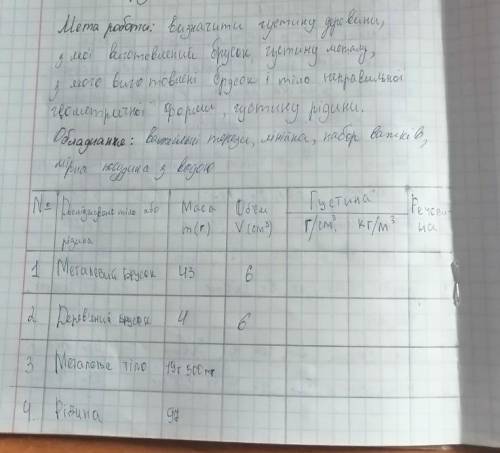 Мета роботи: визначити густину деревини,
з якої виготовлений брусок, густину металу,
з якого виготовлені брусок і тіло неправильної
геометричної форми, густину рідини.
Обладнання: важільні терези, лінійка, набор важків,
мірна посудина з водою
№ Досліджуване тіло або рідина Маса m(г) Об'єм V(см³) Густина г/см³ кг/м³ Речовина
1 Металевий брусок 43 6
2 Дерев'яний брусок 4 6
3 Металеве тіло 19г 500мг
4. Рідина 97